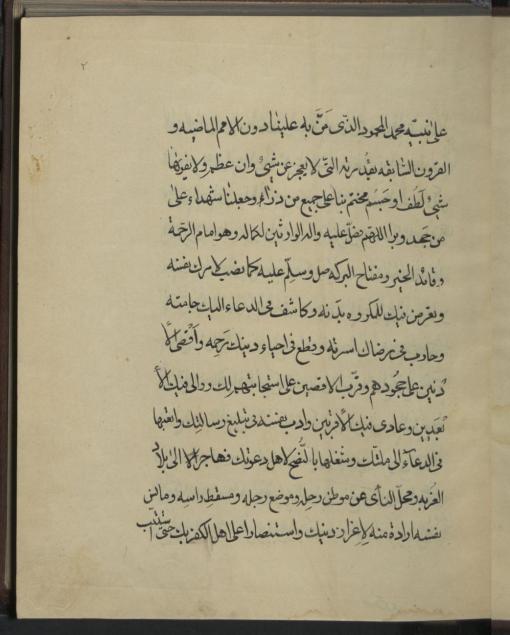 ٢
على نبيّه محمد المحمود الذى مَنَّ به علينا دون الامم الماضيه و
القرون السّابقه بقدرته التّى لا يعجز عن شئ وان عظم ولا يفوتها
شئ لطُف او جَسُم فختم بنا على جميع من ذرأ وجعلنا شهداء على
من جحد وبرا اللهم فضل عليه واله الوارثين لكماله وهو امام الرحمة
وقائد الخير ومفتاح البركه صل وسلم عليه كما نصب لامرك نفسه
وتعرّض فيك للمكروه بدنه وكاشف فى الدعاء اليك حامته
وحارب فى رضاك اسرته وقطع فى احياء دينك رحمه واقصى الا
دنين على جحودهم وقرّب الاقصين على استجابتهم لك ووالى فيك الا
بعدين وعادى فيك الاقربين وادب نفسه فى تبليغ رسالتك واتعبها
فى الدعاء الى ملتك وشغلها بالنُصح لاهل دعوتك وهاجر الى بلاد
الغربه ومحل النأى عن موطن رحله وموضع رجله ومسقط راسه ومانس
نفسه ارادة منه لإعزاز دينك واستنصارا على اهل الكفر بك حتى استتب